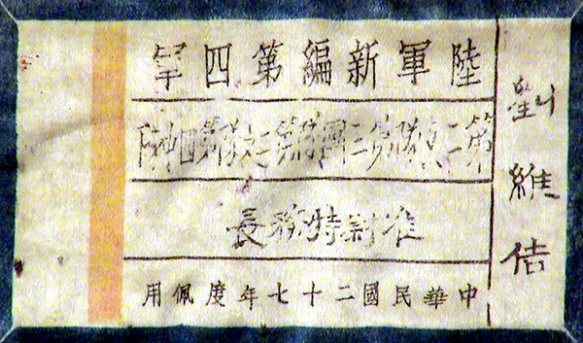 劉維佶
陸軍新編第四軍
第二支隊第三
准尉特務長
中華民國二十七年度佩用